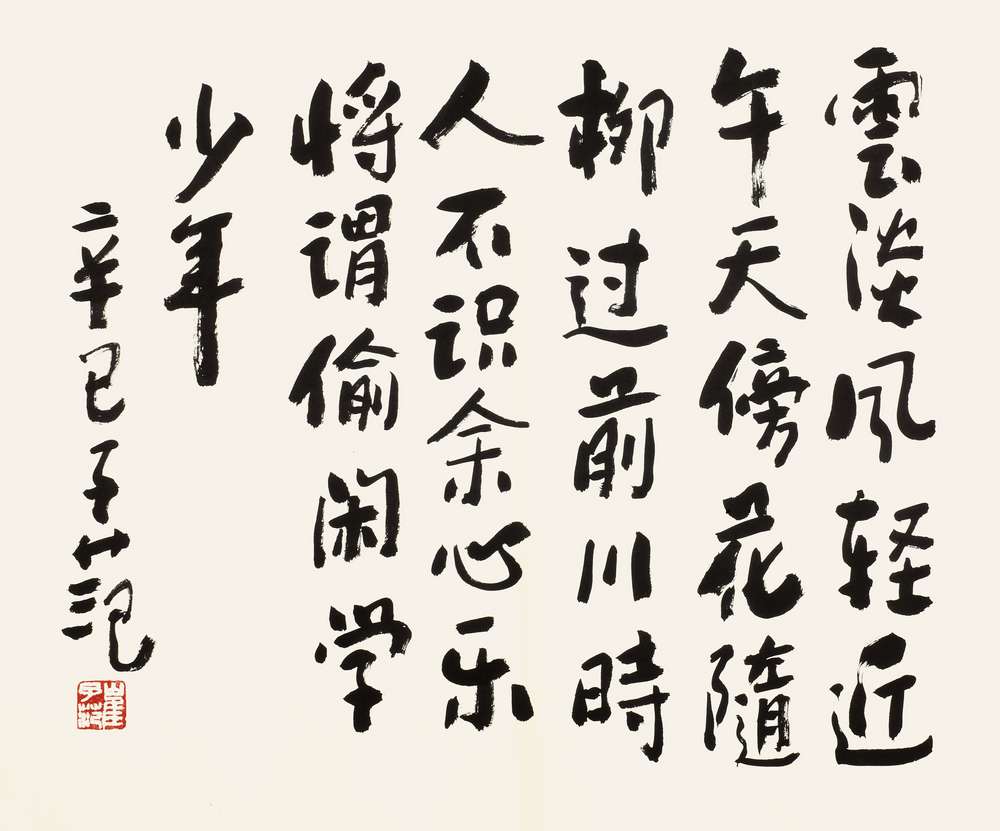 雲淡风轻近
午天傍花隨
柳过前川時
人不识余心乐
将谓偷闲学
少年
辛巳子范
崔子范